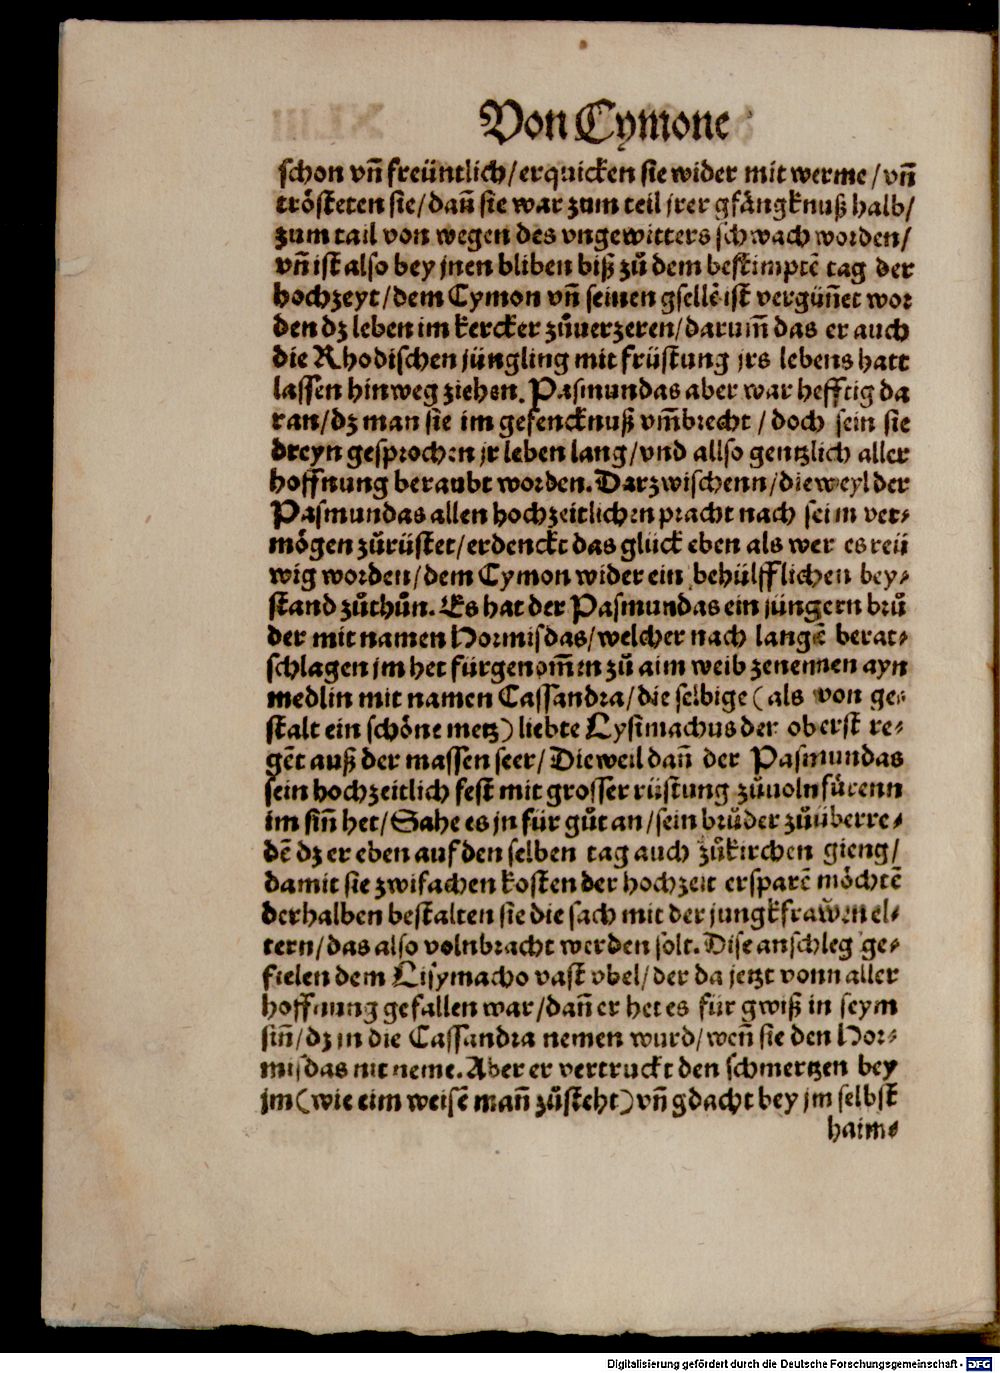 Von Cymone
schon vñ freüntlich/erquicken sie wider mit werme/vñ
trösteten sie/dañ sie war zum teil jrer gfängknuß halb/
zum tail von wegen des vngewitters schwach worden/
vñ ist also bey jnen bliben biß zů dem bestimptē tag der
hochzeyt/dem Cymon vñ seinen gsellē ist vergüñet wor
den dz leben im kercker zůuerzeren/darum̃ das er auch
die Rhodischen jüngling mit früstung jrs lebens hatt
lassen hinweg ziehen. Pasmundas aber war hefftig da
ran/dz man sie im gefencknuß vm̃brecht/doch sein sie
dreyn gesprochen jr leben lang/vnd allso gentzlich aller
hoffnung beraubt worden. Darzwischenn/dieweyl der
Pasmundas allen hochzeitlichen pracht nach seim ver-
mögen zůrüstet/erdenckt das glück eben als wer es reü
wig worden/dem Cymon wider ein behülfflichen bey-
stand zůthůn. Es hat der Pasmundas ein jüngern brů
der mit namen Hormisdas/welcher nach langē berat-
schlagen jm het fürgenom̃en zů aim weib zenemen ayn
medlin mit namen Cassandra/die selbige (als von ge-
stalt ein schöne metz) liebte Lysimachus der oberst re-
gēt auß der massen seer/Dieweil dañ der Pasmundas
sein hochzeitlich fest mit grosser rüstung zůuolnfürenn
im siñ het/Sahe es jn für gůt an/sein brůder zůüberre-
dē dz er eben auf den selben tag auch zůkirchen gieng/
damit sie zwifachen kosten der hochzeit ersparē möchtē
derhalben bestalten sie die sach mit der jungkfrawen el-
tern/das also volnbracht werden solt. Dise anschleg ge-
fielen dem Lisymacho vast vbel/der da jetzt vonn aller
hoffnung gefallen war/dañ er het es für gwiß in seym
siñ/dz jn die Cassandra nemen wurd/weñ sie den Hor-
misdas nit neme. Aber er vertruckt den schmertzen bey
jm (wie eim weisē mañ zůsteht) vñ gdacht bey jm selbst
haim-
Digitalisierung gefördert durch die Deutsche Forschungsgemeinschaft - DFG